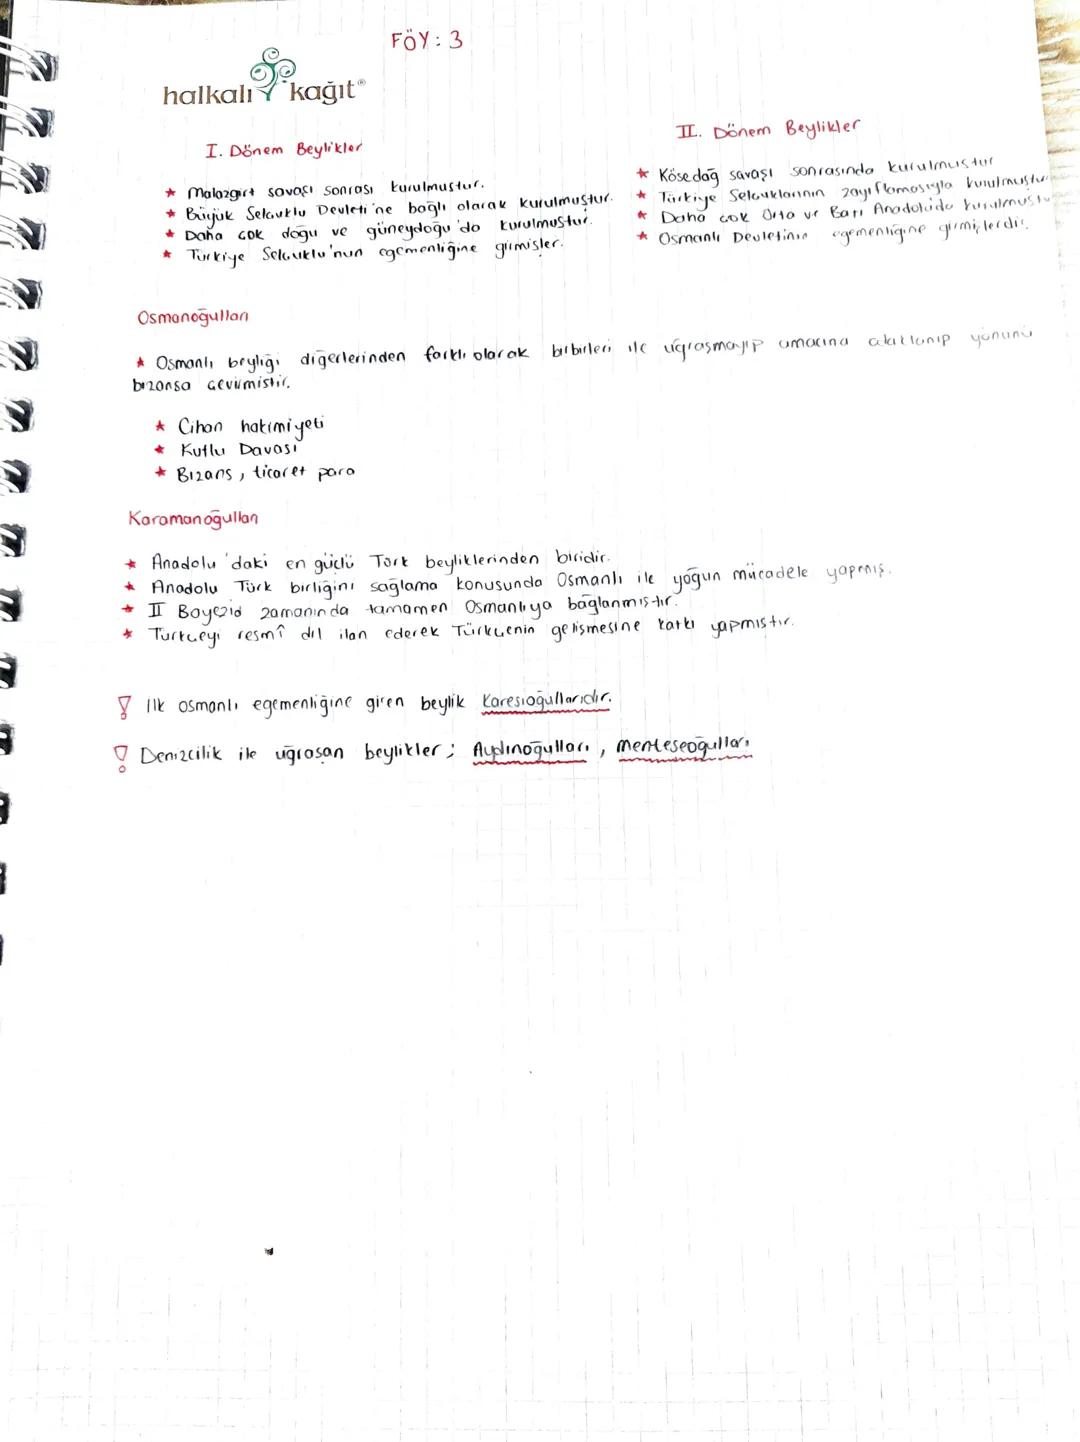 FÖY: 3
halkalı kağıt®
I. Dönem Beylikler
★ Malazgirt savaşı sonrası kurulmuştur.
★ Büyük Selçuklu Devleti'ne bağlı olarak kurulmuştur.
★ Daha çok doğu ve güneydoğu'da kurulmuştur.
★ Türkiye Selçuklu'nun egemenliğine girmişler.
II. Dönem Beylikler
★ Kösedağ savaşı sonrasında kurulmuştur
★ Türkiye Selçuklarının zayıflamasıyla kurulmuştur
★ Daha çok Orta ve Batı Anadoluda kurulmuştur
★ Osmanlı Devletinin egemenliğine girmişlerdir.
Osmanoğulları
★ Osmanlı beyliği diğerlerinden farklı olarak birbirleri ile uğraşmayıp amacına odaklanıp yönünü
bizansa çevirmiştir.
★ Cihan hakimiyeti
★ Kutlu Davası
★ Bizans, ticaret para
Karamanoğulları
★ Anadolu'daki en güçlü Türk beyliklerinden biridir.
★ Anadolu Türk birliğini sağlama konusunda Osmanlı ile yoğun mücadele yapmış.
★ II Bayezid zamanında tamamen Osmanlıya bağlanmıştır.
★ Türkçeyi resmî dil ilan ederek Türkçenin gelişmesine katkı yapmıştır.
! Ilk osmanlı egemenliğine giren beylik Karesioğullarıdır.
! Denizcilik ile uğraşan beylikler; Aydınoğulları, Menteşeoğulları